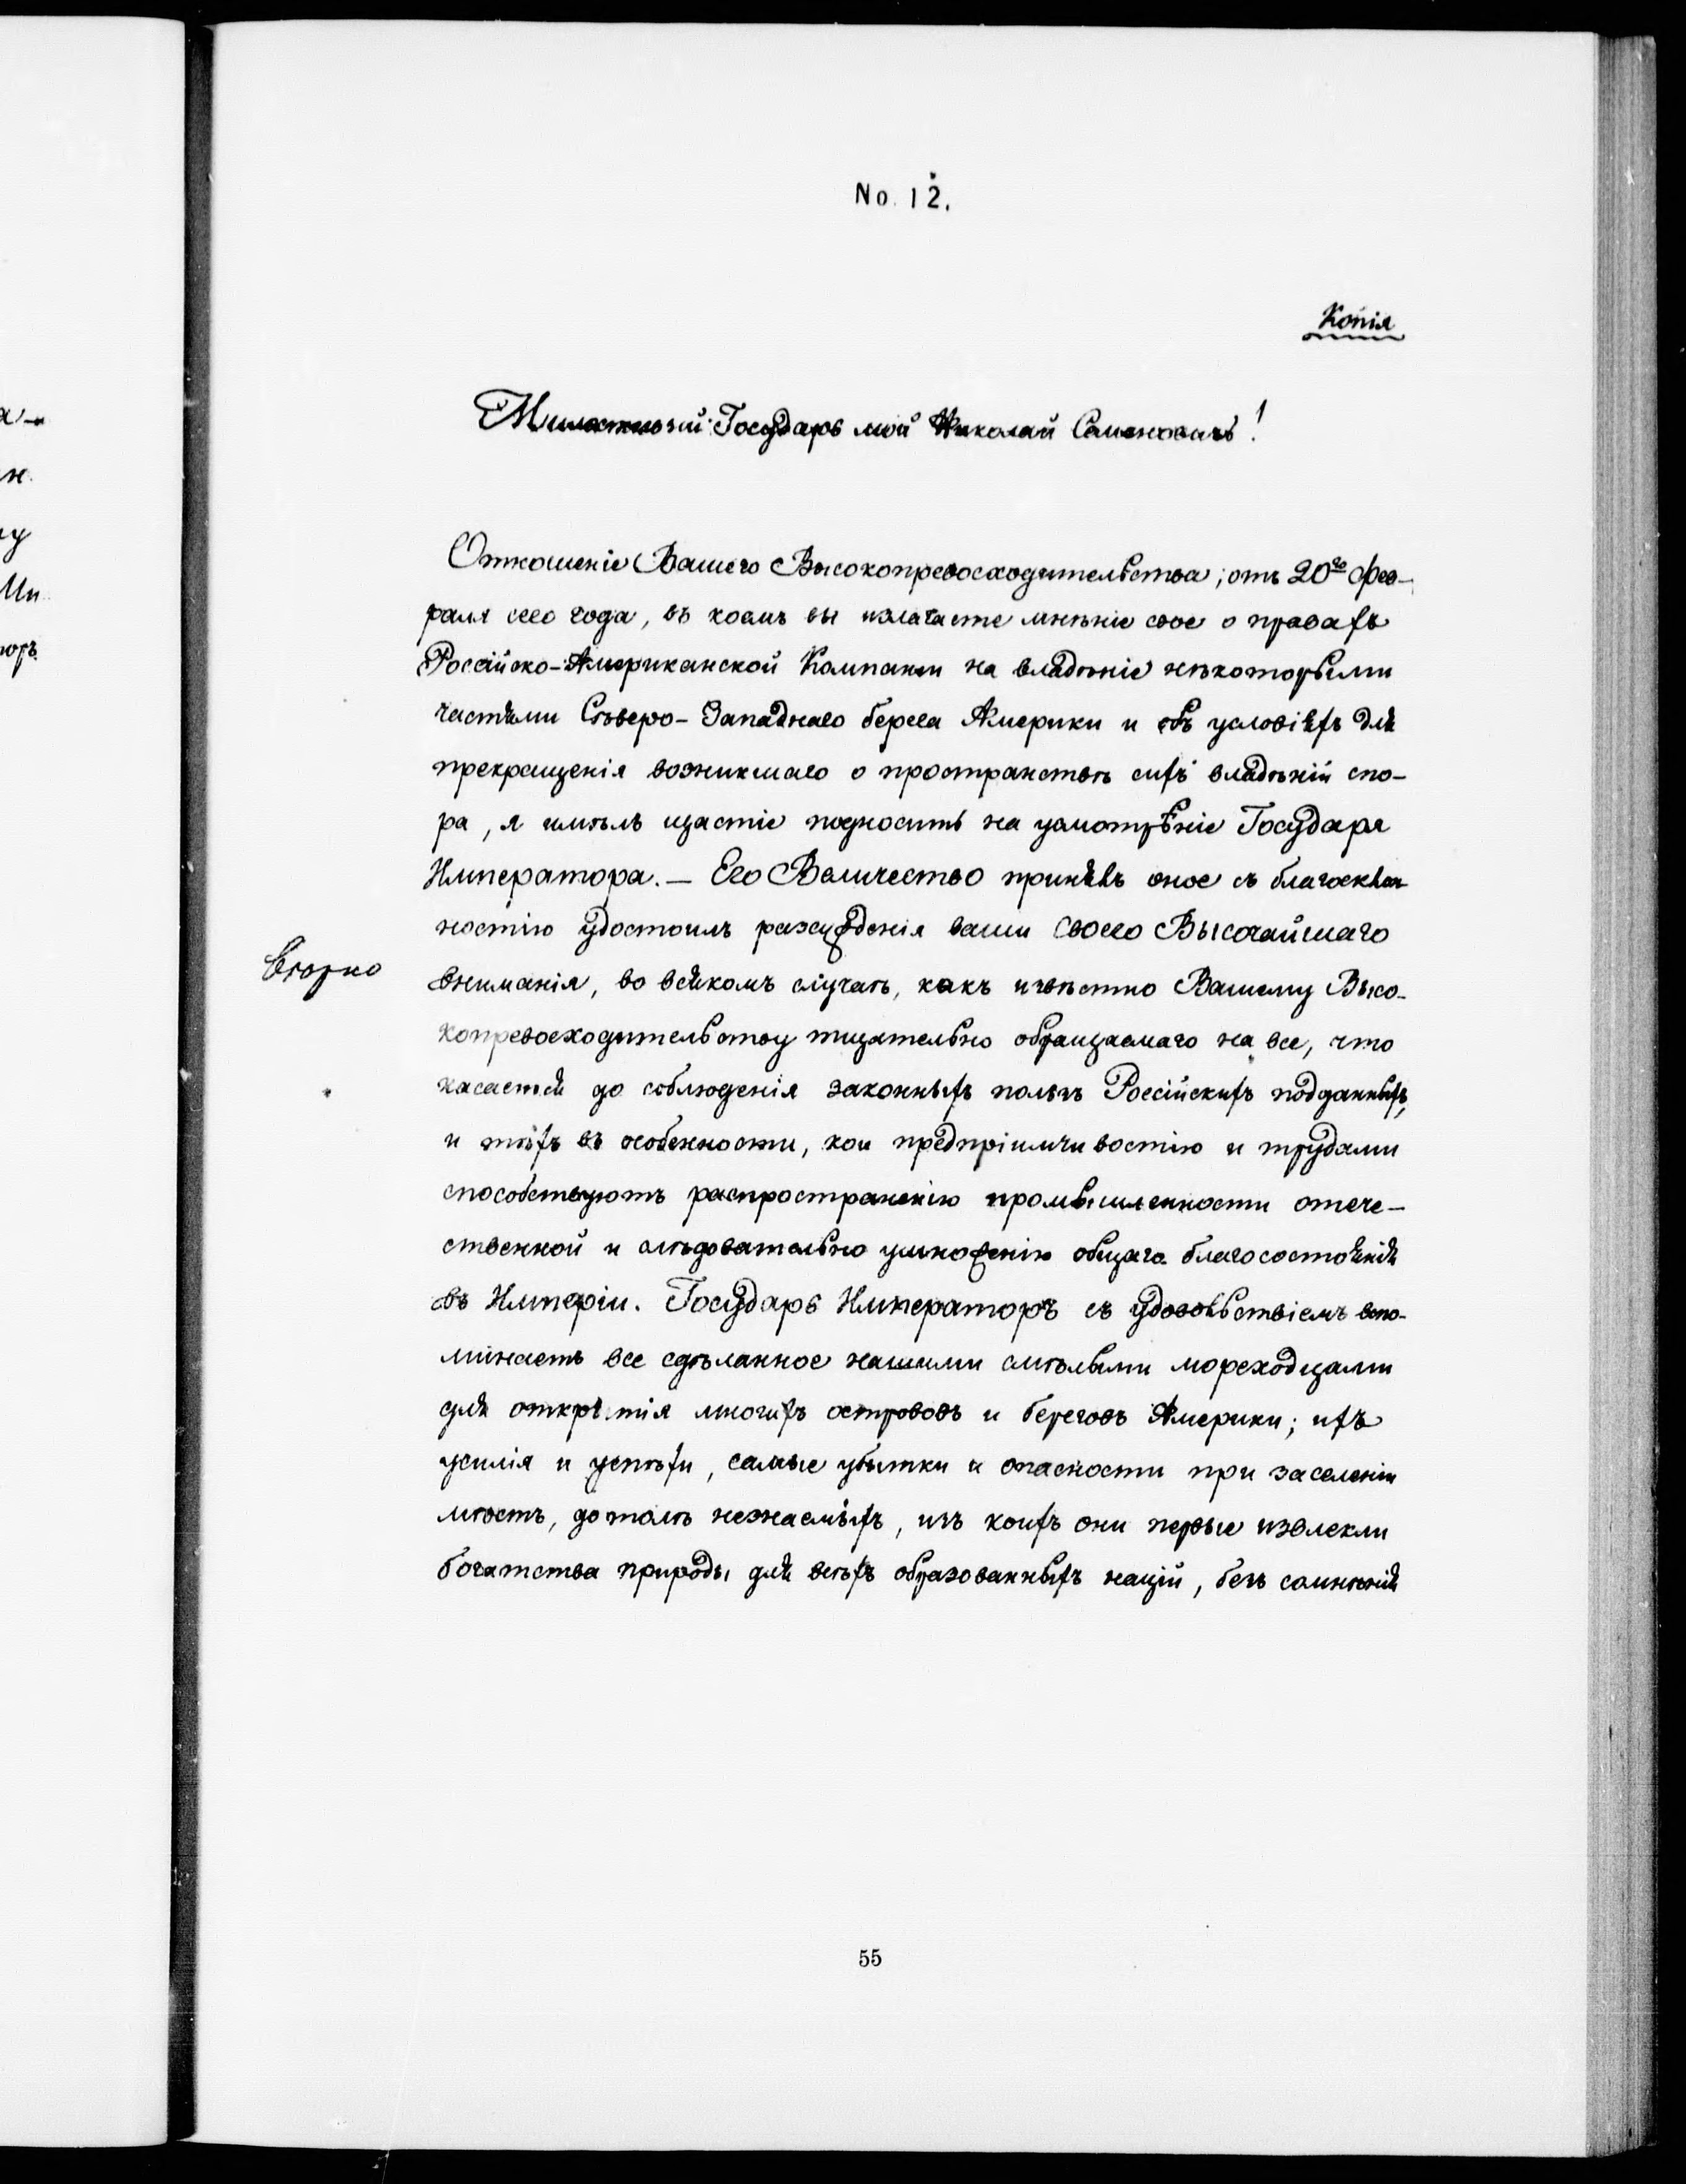 No. 12.
Копія
Милостивый Государь мой Николай Семеновичъ!
Отношеніе Вашего Высокопревосходительства, отъ 20го Фев-
раля сего года, въ коемъ вы излагаете мнѣніе свое о правахъ
Россійско-Американской Компаніи на владѣніе нѣкоторыми
частями Сѣверо-Западнаго берега Америки и объ условіяхъ для
прекращенія возникшаго о пространствѣ сихъ владѣній спо-
ра, я имѣлъ щастіе подносить на усмотрѣніе Государя
Императора. — Его Величество принявъ оное съ благосклон-
ностію удостоилъ разсужденія ваши своего Высочайшаго
вниманія, во всякомъ случаѣ, какъ извѣстно Вашему Высо-
копревосходительству тщательно обращаемаго на все, что
касается до соблюденія законныхъ пользъ Россійскихъ подданныхъ,
и тѣхъ въ особенности, кои предпріимчивостію и трудами
способствуютъ распространенію промышленности отече-
ственной и слѣдовательно умноженію общаго благосостоянія
въ Имперіи. Государь Императоръ съ удовольствіемъ вспо-
минаетъ все сдѣланное нашими смѣлыми мореходцами
для открытія многихъ острововъ и береговъ Америки; ихъ
усилія и успѣхи, самые убытки и опасности при заселеніи
мѣстъ, дотолѣ незнаемыхъ, изъ коихъ они первые извлекли
богатства природы для всѣхъ образованныхъ націй, безъ сомнѣнія
55